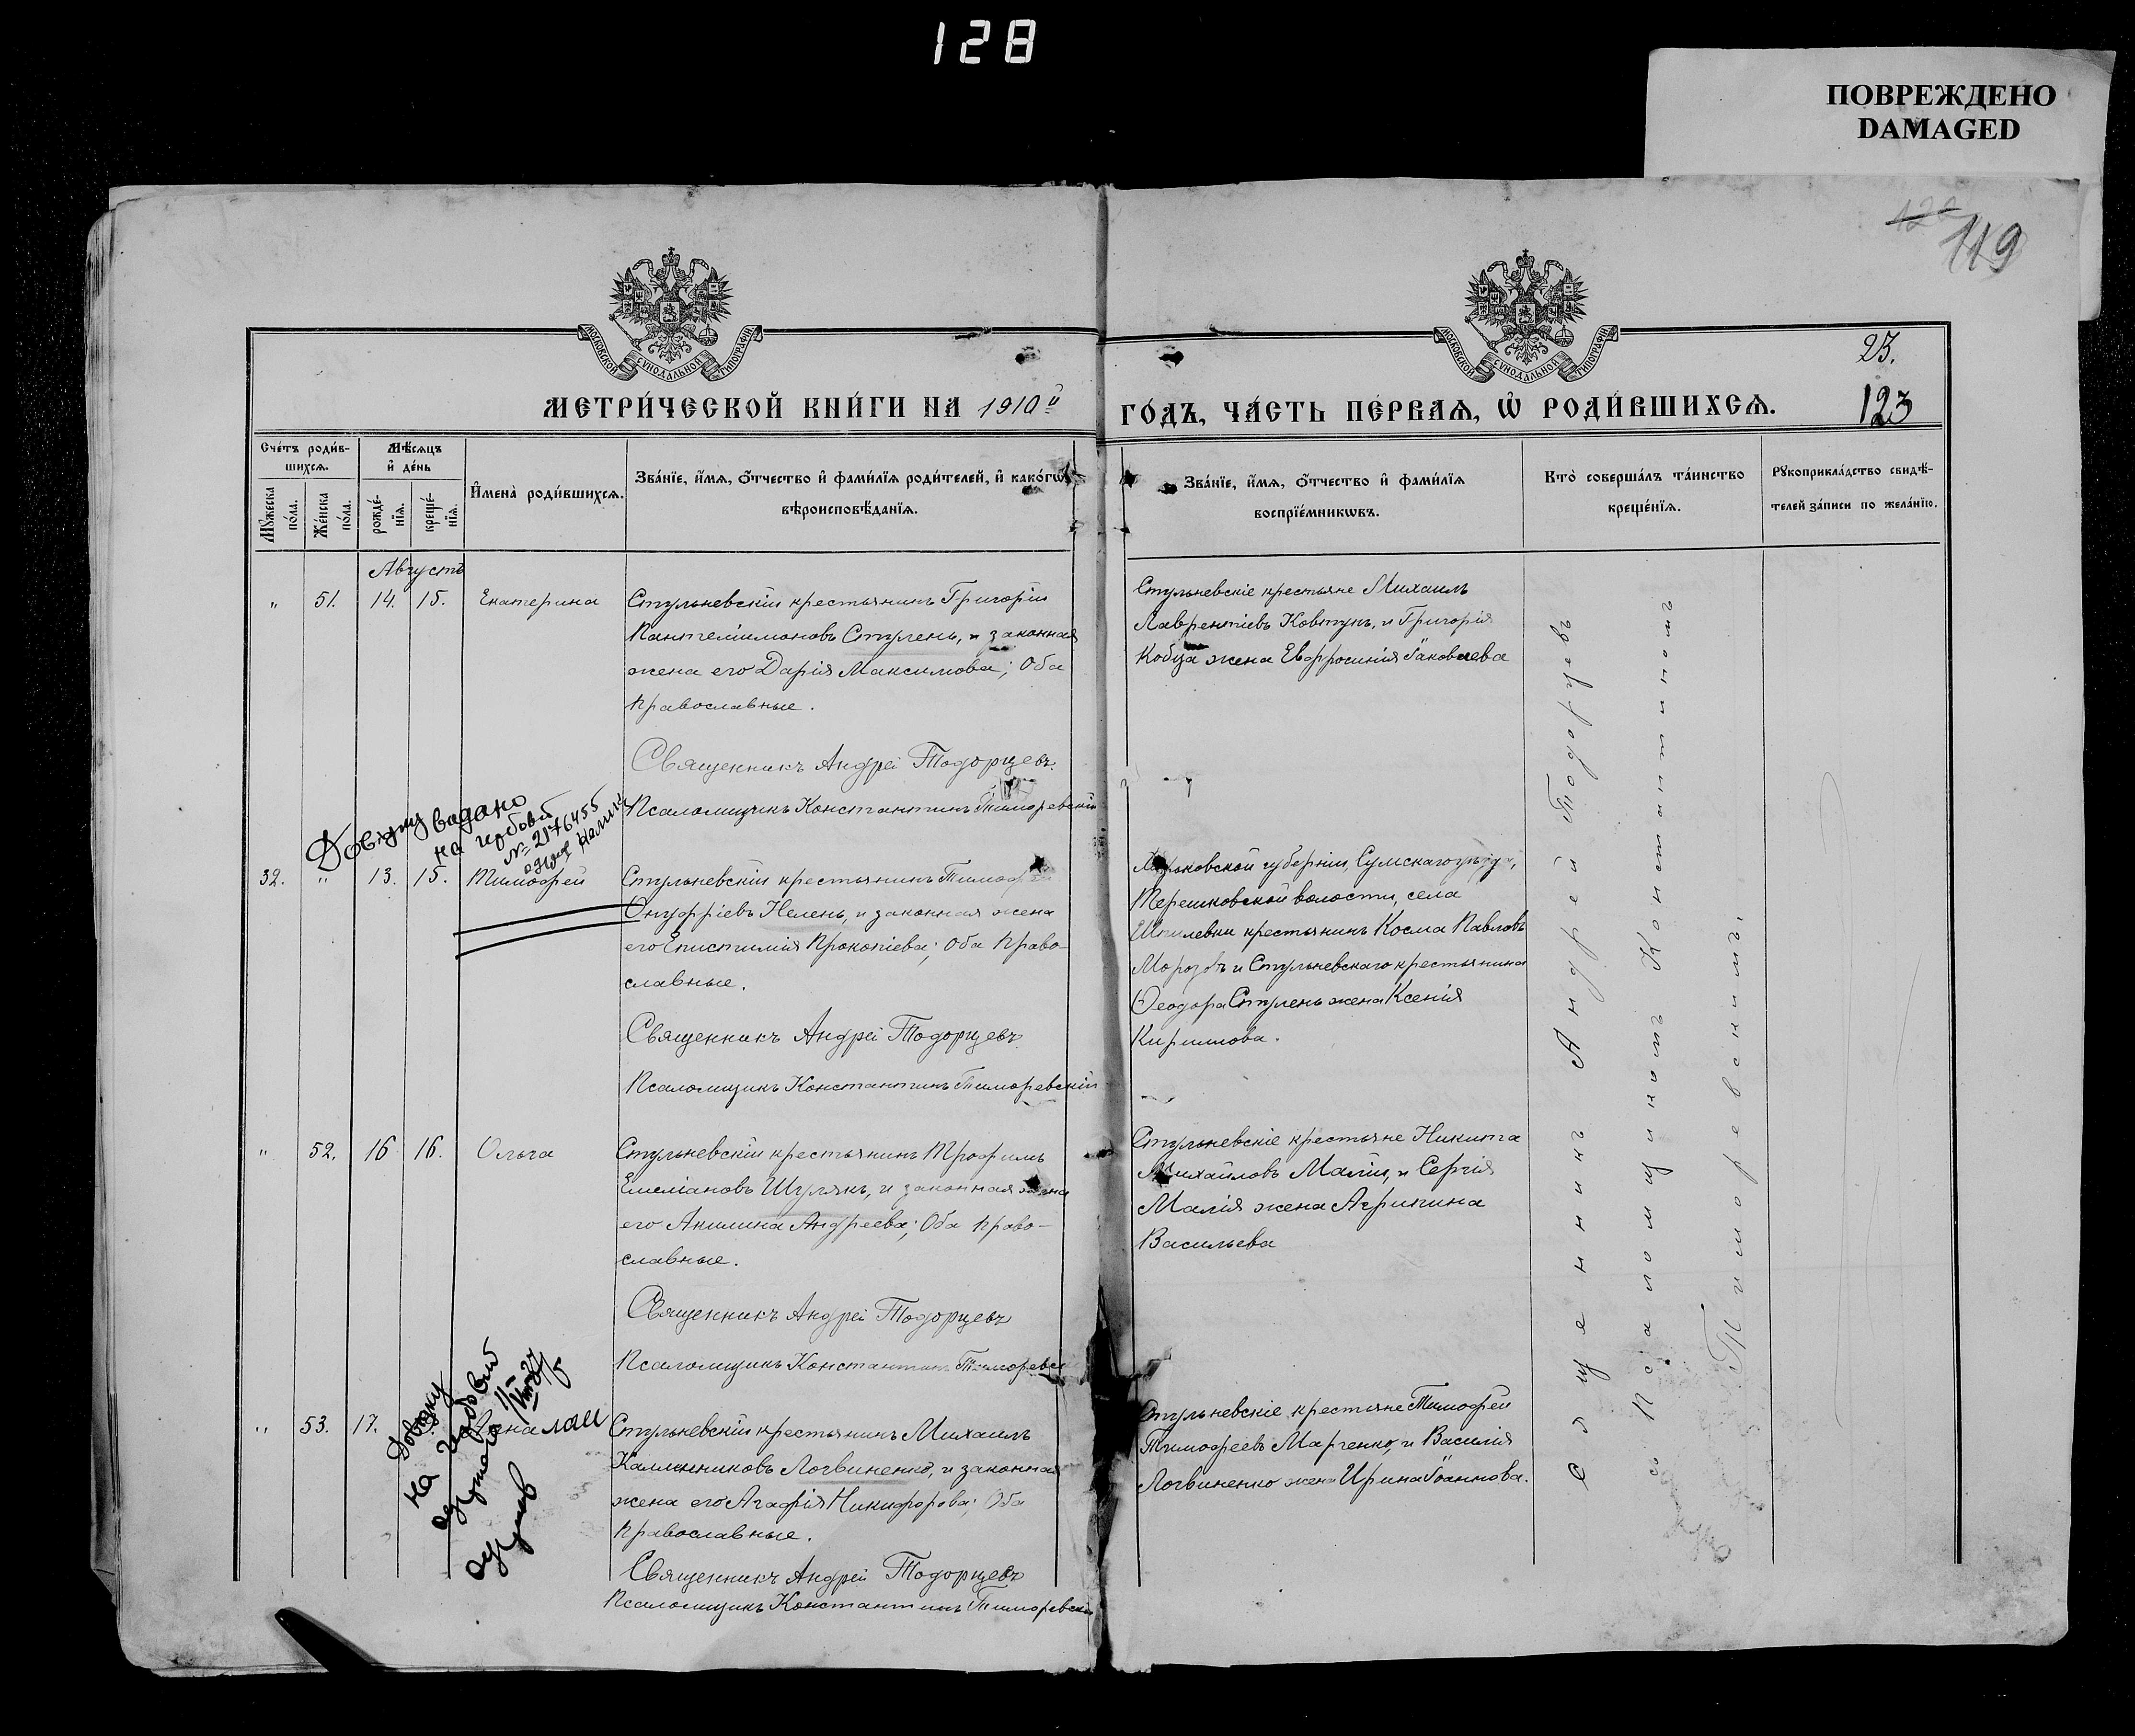 128
ПОВРЕЖДЕНО
DAMAGED
119
23.
123
МЕТРИ́ЧЕСКОЙ КНИ́ГИ НА 1910й ГО́ДЪ, ЧА́СТЬ ПЕ́РВАѦ, Ѡ҆ РОДИ́ВШИХСѦ.
МОСКОВСКОЙ СѴНОДАЛЬНОЙ ТИПОГРАФІИ
МОСКОВСКОЙ СѴНОДАЛЬНОЙ ТИПОГРАФІИ
Сче́тъ роди́в-
шихсѧ.
Мꙋ́жеска по́ла.
Же́нска по́ла.
Мѣ́сѧцъ и҆ де́нь
рожде́-
нїѧ.
креще́-
нїѧ.
И҆мена̀ роди́вшихсѧ.
Зва́нїе, и҆́мѧ, ѻ҆́тчество и҆ фами́лїѧ роди́телей, и҆ како́гѡ
вѣроисповѣ́данїѧ.
Зва́нїе, и҆́мѧ, ѻ҆́тчество и҆ фами́лїѧ
воспрїе́мникѡвъ.
Кто̀ соверша́лъ та́инство
креще́нїѧ.
Рꙋкоприкла́дство свидѣ́-
телей за́писи по жела́нїю.
Августъ
" 51. 14. 15. Екатерина
Стульневскій крестьянинъ Григорій
Пантелімоновъ Ступень, и законная
жена его Дарія Максимова; Оба
православные.
Священникъ Андрей Тодорцевъ.
Псаломщикъ Константинъ Тиморевскій
Стульневскіе крестьяне Михаилъ
Лаврентіевъ Ковтунъ, и Григорія
Кобца жена Евфросинія Іаковлева
Довідку видано
на гербовій
№ 2176455
32. " 13. 15. Тимофей
Стульневскій крестьянинъ Тимофей
Онуфріевъ Нелень, и законная жена
его Епистимія Прокопіева; Оба право-
славные.
Священникъ Андрей Тодорцевъ
Псаломщикъ Константинъ Тиморевскій
Харьковской губерніи, Сумскаго уѣзда,
Терешковской волости, села
Шпилевки крестьянинъ Косма Павловъ
Морозовъ и Стульневскаго крестьянина
Ѳеодора Ступень жена Ксенія
Кириллова.
" 52. 16 16. Ольга
Стульневскій крестьянинъ Трофимъ
Емеліановъ Шулякъ, и законная жена
его Акилина Андреева; Оба право-
славные.
Священникъ Андрей Тодорцевъ
Псаломщикъ Константинъ Тиморевск
Стульневскіе крестьяне Никита
Михайловъ Малій, и Сергія
Малія жена Агрипина
Васильева
Довідку
на гербовий
" 53. 17.
Стульневскій крестьянинъ Михаилъ
Калинниковъ Логвиненко, и законная
жена его Агафія Никифорова; Оба
православные.
Священникъ Андрей Тодорцевъ
Псаломщикъ Константинъ Тиморевскій
Стульневскіе крестьяне Тимофей
Тимофеевъ Марченко, и Василія
Логвиненко жена Ирина Іоаннова.
Священникъ Андрей Тодорцевъ
съ Псаломщикомъ Константиномъ
Тиморевскимъ.